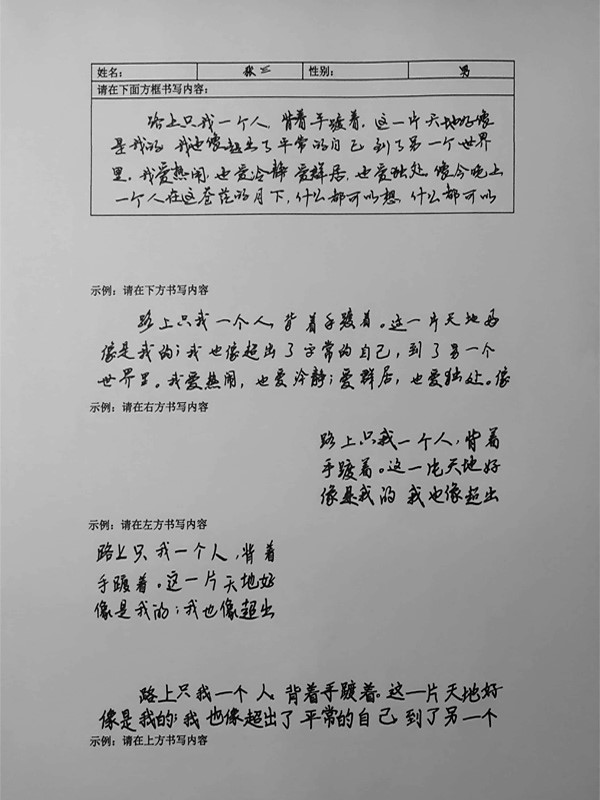 姓名： 张三 性别： 男
请在下面方框书写内容：
路上只我一个人，背着手踱着。这一片天地好像
是我的，我也像超出了平常的自己，到了另一个世界
里。我爱热闹，也爱冷静，爱群居，也爱独处。像今晚上
一个人在这苍茫的月下，什么都可以想，什么都可以
示例：请在下方书写内容
路上只我一个人，背着手踱着。这一片天地好
像是我的；我也像超出了平常的自己，到了另一个
世界里。我爱热闹，也爱冷静；爱群居，也爱独处。像
示例：请在右方书写内容
路上只我一个人，背着
手踱着。这一片天地好
像是我的 我也像超出
示例：请在左方书写内容
路上只我一个人，背着
手踱着。这一片天地好
像是我的；我也像超出
路上只我一个人，背着手踱着。这一片天地好
像是我的；我也像超出了平常的自己 到了另一个
示例：请在上方书写内容